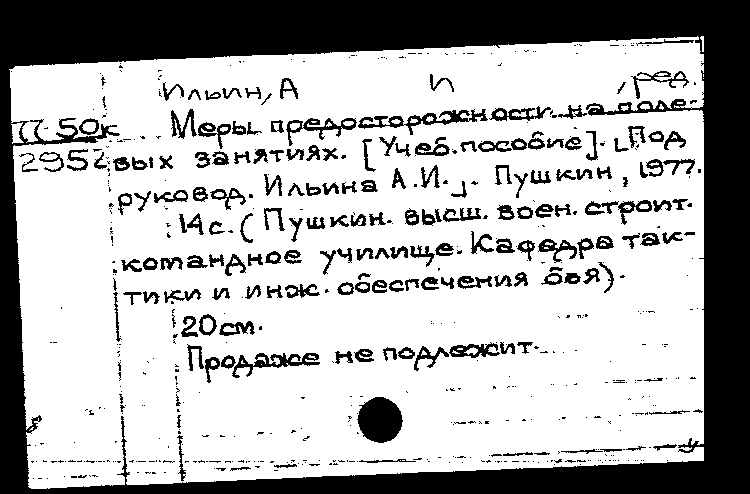 Ильин, А И , ред.
П 50к Меры предосторожности на поле-
2952 вых занятиях. [Учеб. пособие]. ⌊Под
руковод. Ильина А.И.⌋. Пушкин, 1977.
14 с. (Пушкин. высш. воен. строит.
командное училище. Кафедра так-
тики и инж. обеспечения боя).
20 см.
Продаже не подлежит.